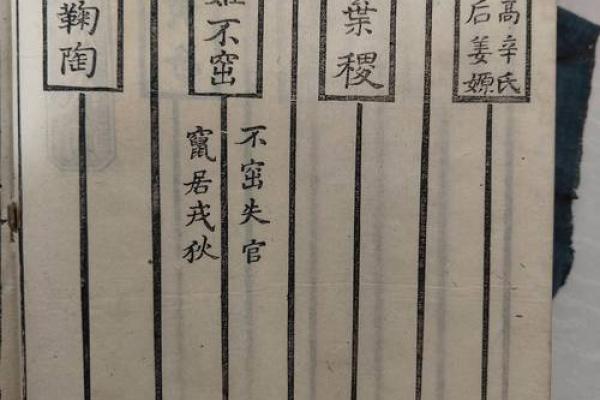 高辛氏
后姜嫄
葉稷
不窋
不窋失官
竄居戎狄
鞠陶